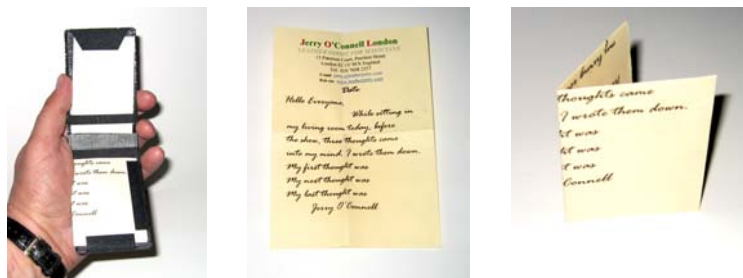 thoughts came
I wrote them down.
it was
t was
t was
Connell
Jerry O'Connell London
LEATHER GOODS FOR MAGICIANS
Date
Hello Everyone,
While sitting in
my living room today, before
the show, these thoughts came
into my mind. I wrote them down.
My first thought was
My next thought was
My last thought was
Jerry O'Connell
thoughts came
I wrote them down.
it was
it was
t was
Connell